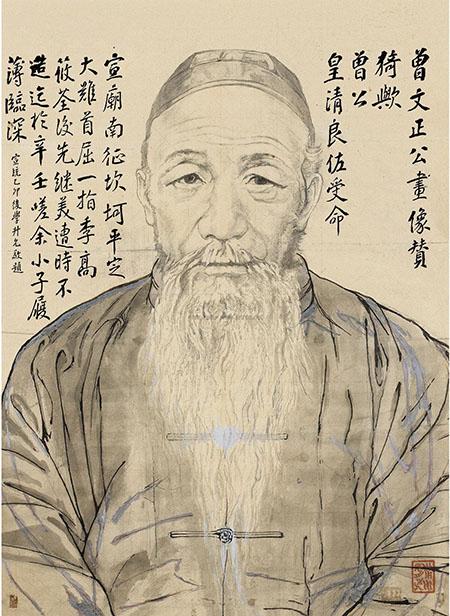 曾文正公畫像赞
猗歟
曾公
皇清良佐受命
宣廟南征坎坷平定
大難首屈一指季高
筱荃後先继美遭時不
造迄於辛壬嗟余小子履
薄臨深
宣統乙卯後學升允敬題